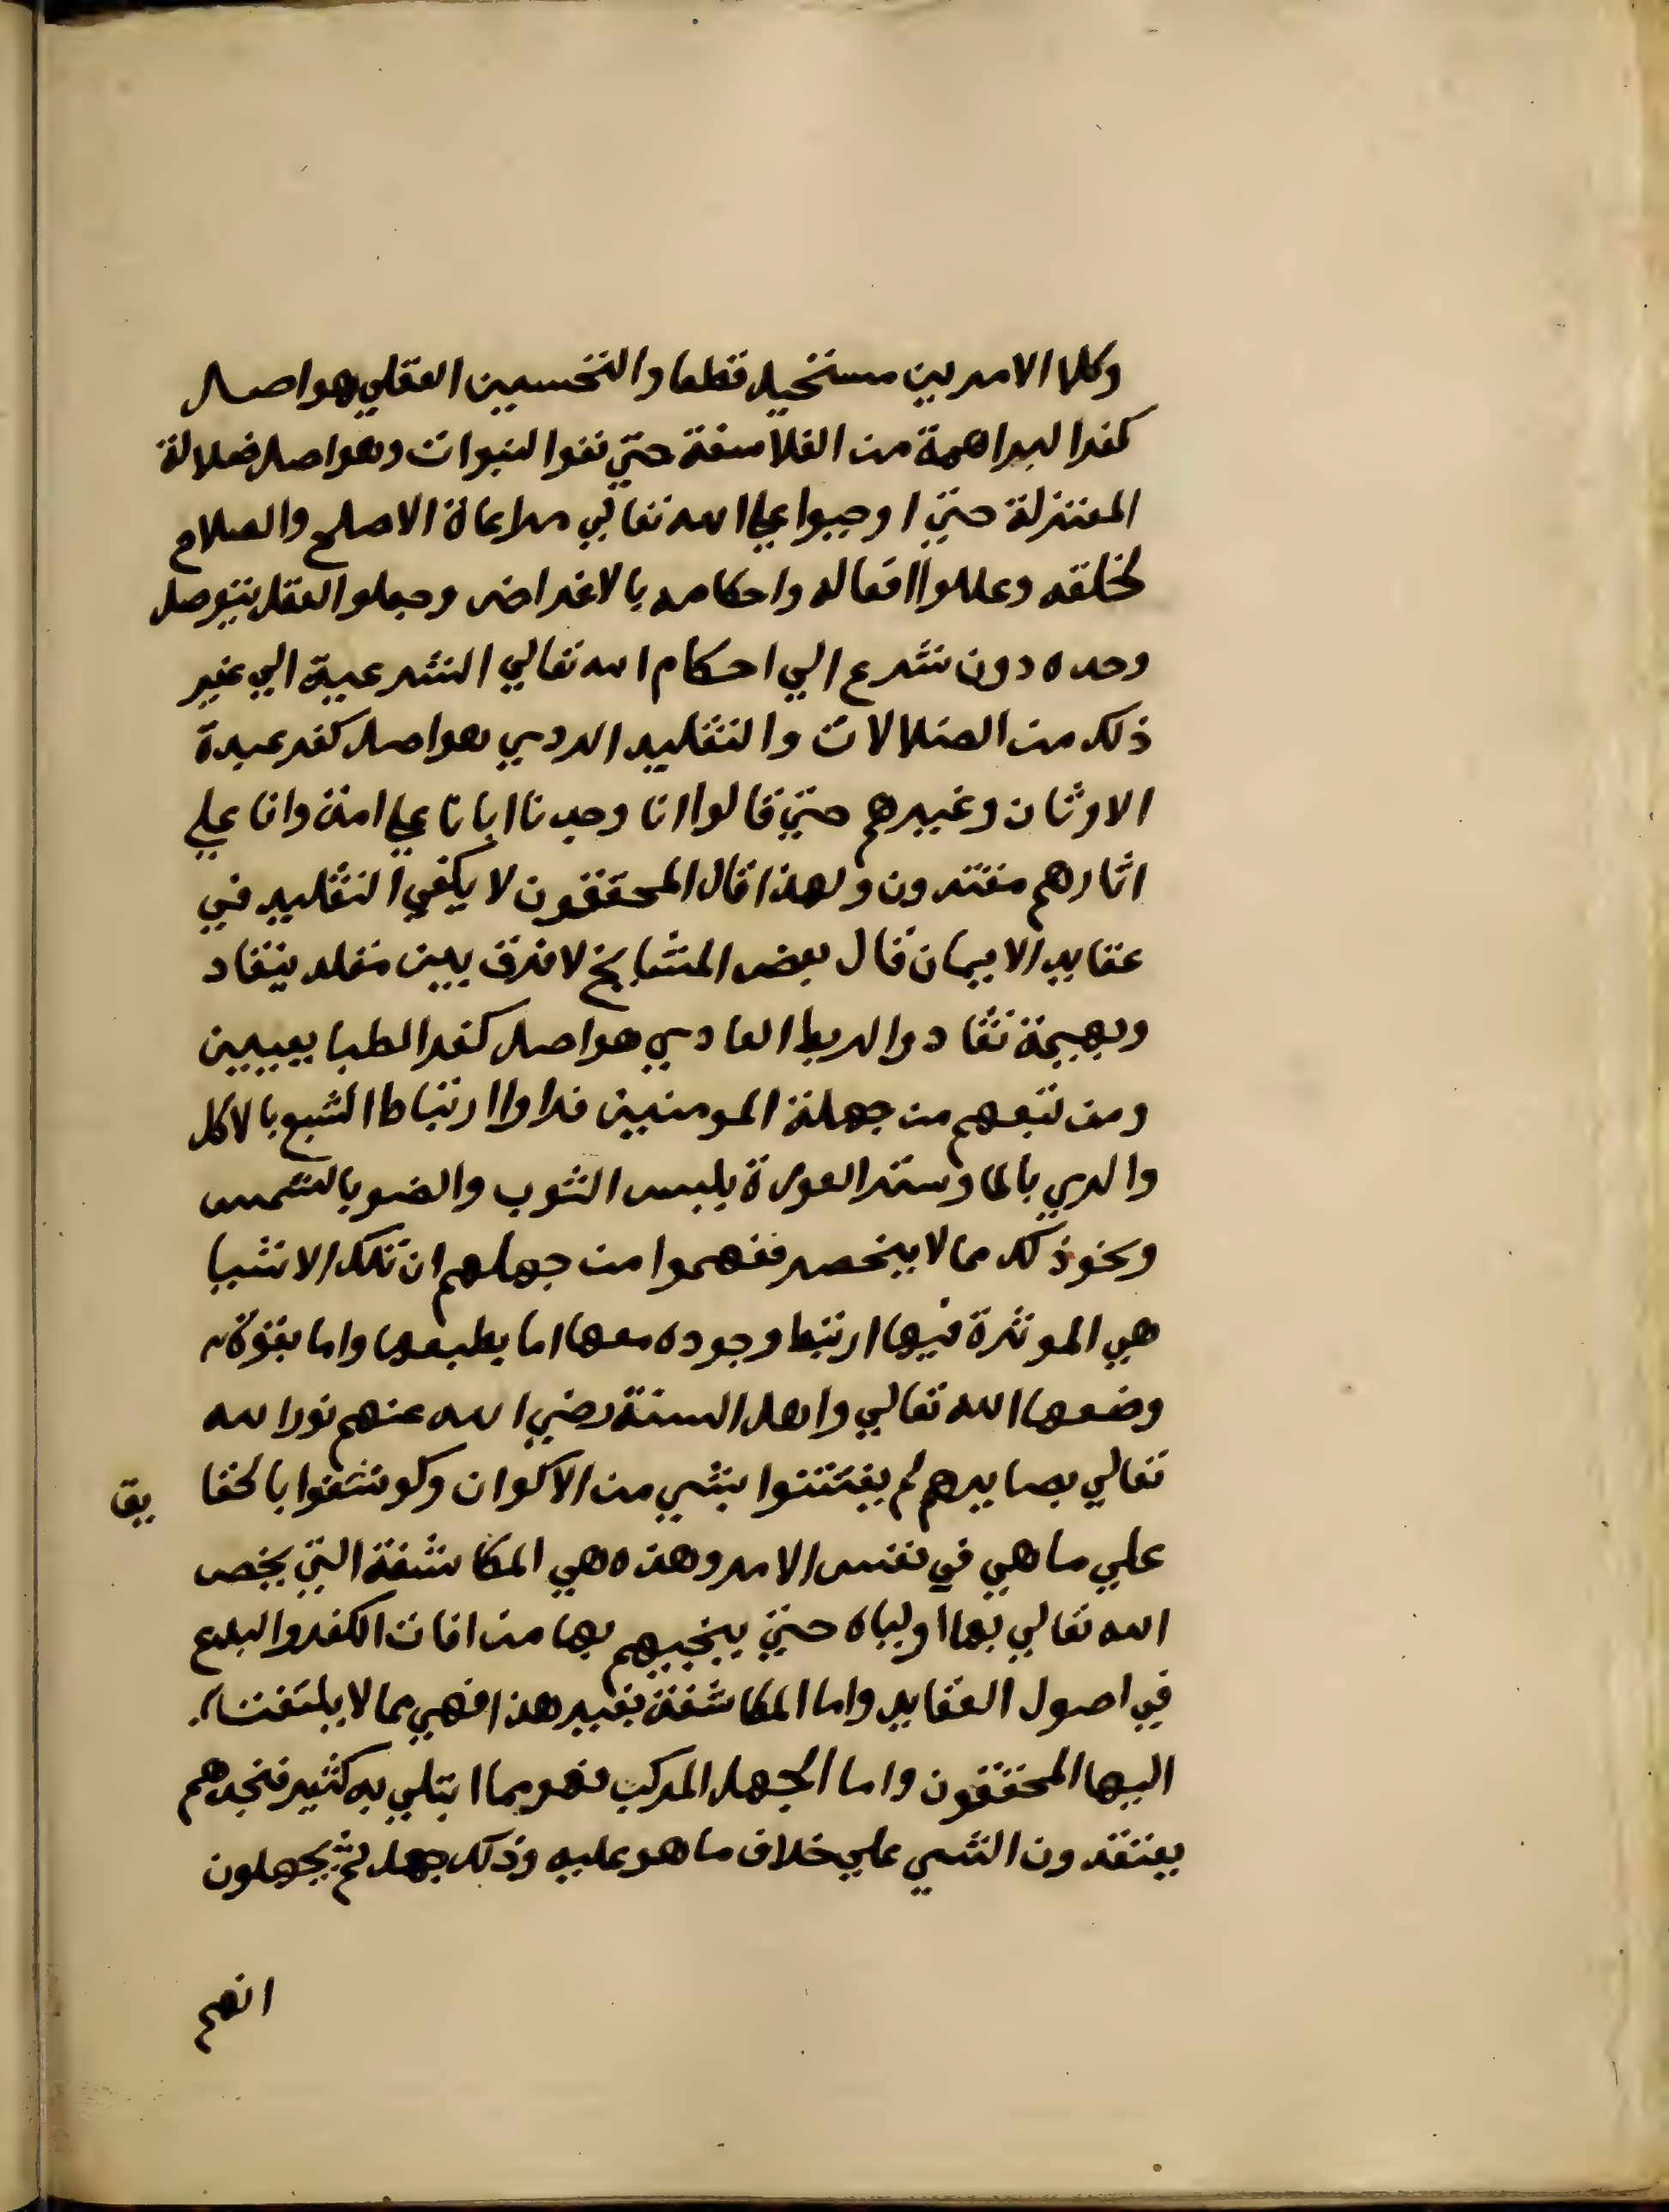 وكلا الامرين مستحيل قطعا والتحسين العقلي هو اصل
كفر البراهمة من الفلاسفة حتي نفوا النبوات وهو اصل ضلالة
المعتزلة حتي اوجبوا علي الله تعالي مراعاة الاصلح والصلاح
لخلقه وعللوا افعاله واحكامه بالاغراض وجعلوا العقل يتوصل
وحده دون شرع الي احكام الله تعالي الشرعية الي غير
ذلك من الضلالات والتقليد الردي هو اصل كفر عبدة
الاوثان وغيرهم حتي قالوا انا وجدنا ابانا علي امة وانا علي
اثارهم مقتدون ولهذا قال المحققون لا يكفي التقليد في
عقايد الايمان قال بعض المشايخ لا فرق بين مقلد ينقاد
وبهيمة تقاد والربط العادي هو اصل كفر الطبايعيين
ومن تبعهم من جهلة المومنين فراوا ارتباط الشبع بالاكل
والري بالما وستر العورة بلبس الثوب والضو بالشمس
ونحو ذلك مما لا ينحصر ففهموا من جهلهم ان تلك الاشيا
هي الموثرة فيها ارتبط وجوده معها اما بطبعها واما بقوة
وضعها الله تعالي واهل السنة رضي الله عنهم نور الله
تعالي بصايرهم لم يفتتنوا بشي من الاكوان وكوشفوا بالحقا يق
علي ما هي في نفس الامر وهذه هي المكاشفة التي يخص
الله تعالي بها اولياه حتي ينجيهم بها من افات الكفر والبدع
في اصول العقايد واما المكاشفة بغير هذا فهي مما لا يلتفت
اليها المحققون واما الجهل المركب فهو مما ابتلي به كثير فتجدهم
يعتقدون الشي علي خلاف ما هو عليه وذلك جهل ثم يجهلون
انهم